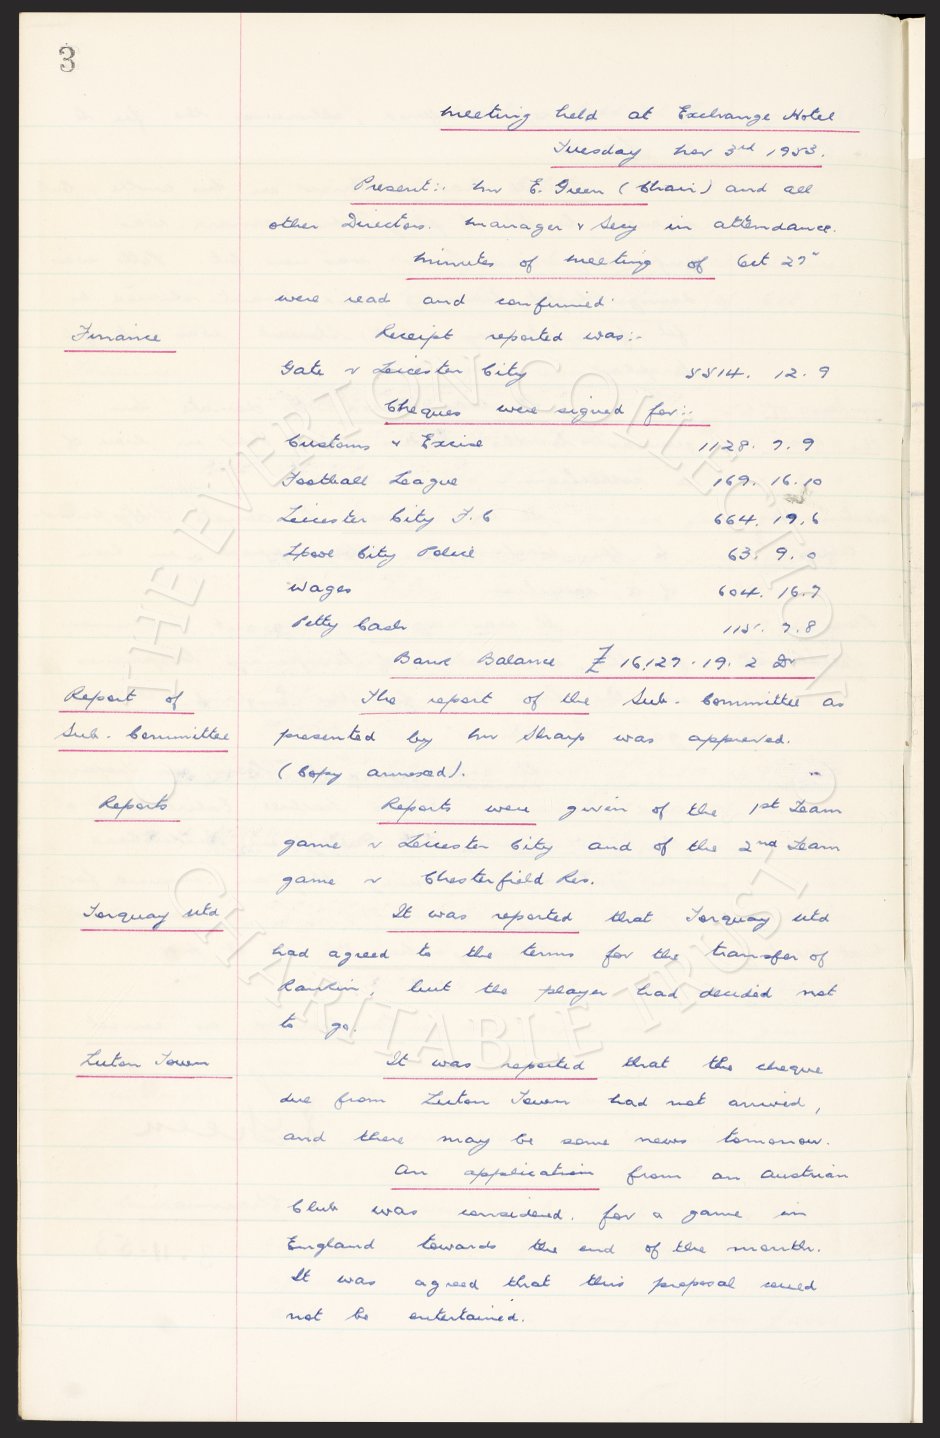 3
Meeting held at Exchange Hotel
Tuesday Nov 3rd 1953.
Present:- Mr E. Green (Chair) and all
other Directors. Manager & Secy in attendance.
Minutes of meeting of Oct 27"
were read and confirmed.
Finance
Receipt reported was:-
Gate v Leicester City 5514. 12. 9
Cheques were signed for:-
Customs & Excise 1128. 7. 9
Football League 169. 16. 10
Leicester City F.C 664. 19. 6
L'pool City Police 63. 9. 0
Wages 604. 16. 7
Petty Cash 115. 7. 8
Bank Balance £ 16,127. 19. 2 Dr
Report of
Sub. Committee
The report of the Sub. Committee as
presented by Mr Sharp was approved.
(Copy annexed).
Reports
Reports were given of the 1st Team
game v Leicester City and of the 2nd Team
game v Chesterfield Res.
Torquay Utd
It was reported that Torquay Utd
had agreed to the terms for the transfer of
Rankin, but the player had decided not
to go.
Luton Town
It was reported that the cheque
due from Luton Town had not arrived,
and there may be some news tomorrow.
An application from an Austrian
Club was considered, for a game in
England towards the end of the month.
It was agreed that this proposal could
not be entertained.
THE EVERTON COLLECTION
CHARITABLE TRUST